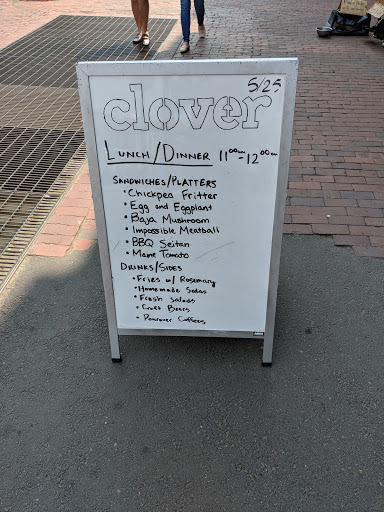 5/25
clover
LUNCH/DINNER 11⁰⁰am-12⁰⁰am
SANDWICHES/PLATTERS
• Chickpea Fritter
• Egg and Eggplant
• Baja Mushroom
• Impossible Meatball
• BBQ Seitan
• Maine Tomato
DRINKS/SIDES
• Fries w/ Rosemary
• Homemade Sodas
• Fresh Salads
• Craft Beers
• Pourover Coffees